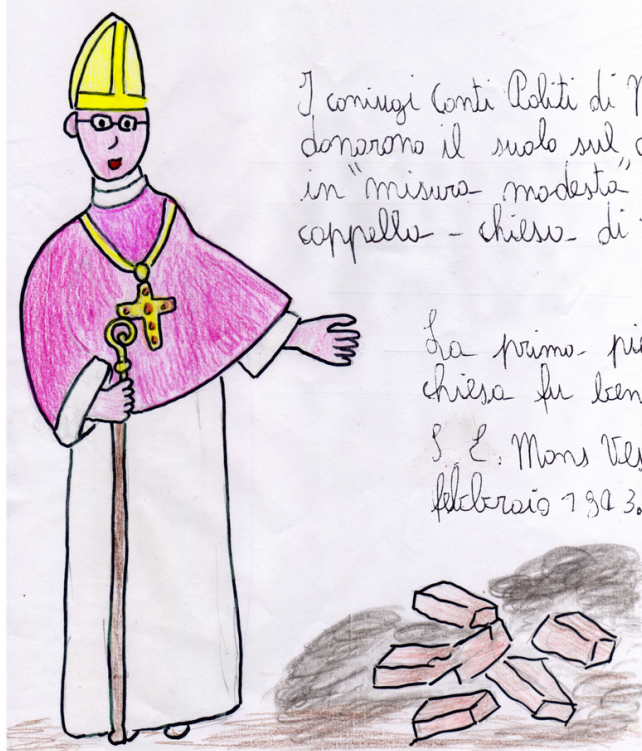 I coniugi Conti Politi di
donarono il suolo sul
in "misura modesta"
cappella - chiesa di
La prima
chiesa fu
S. E. Mons
febbraio